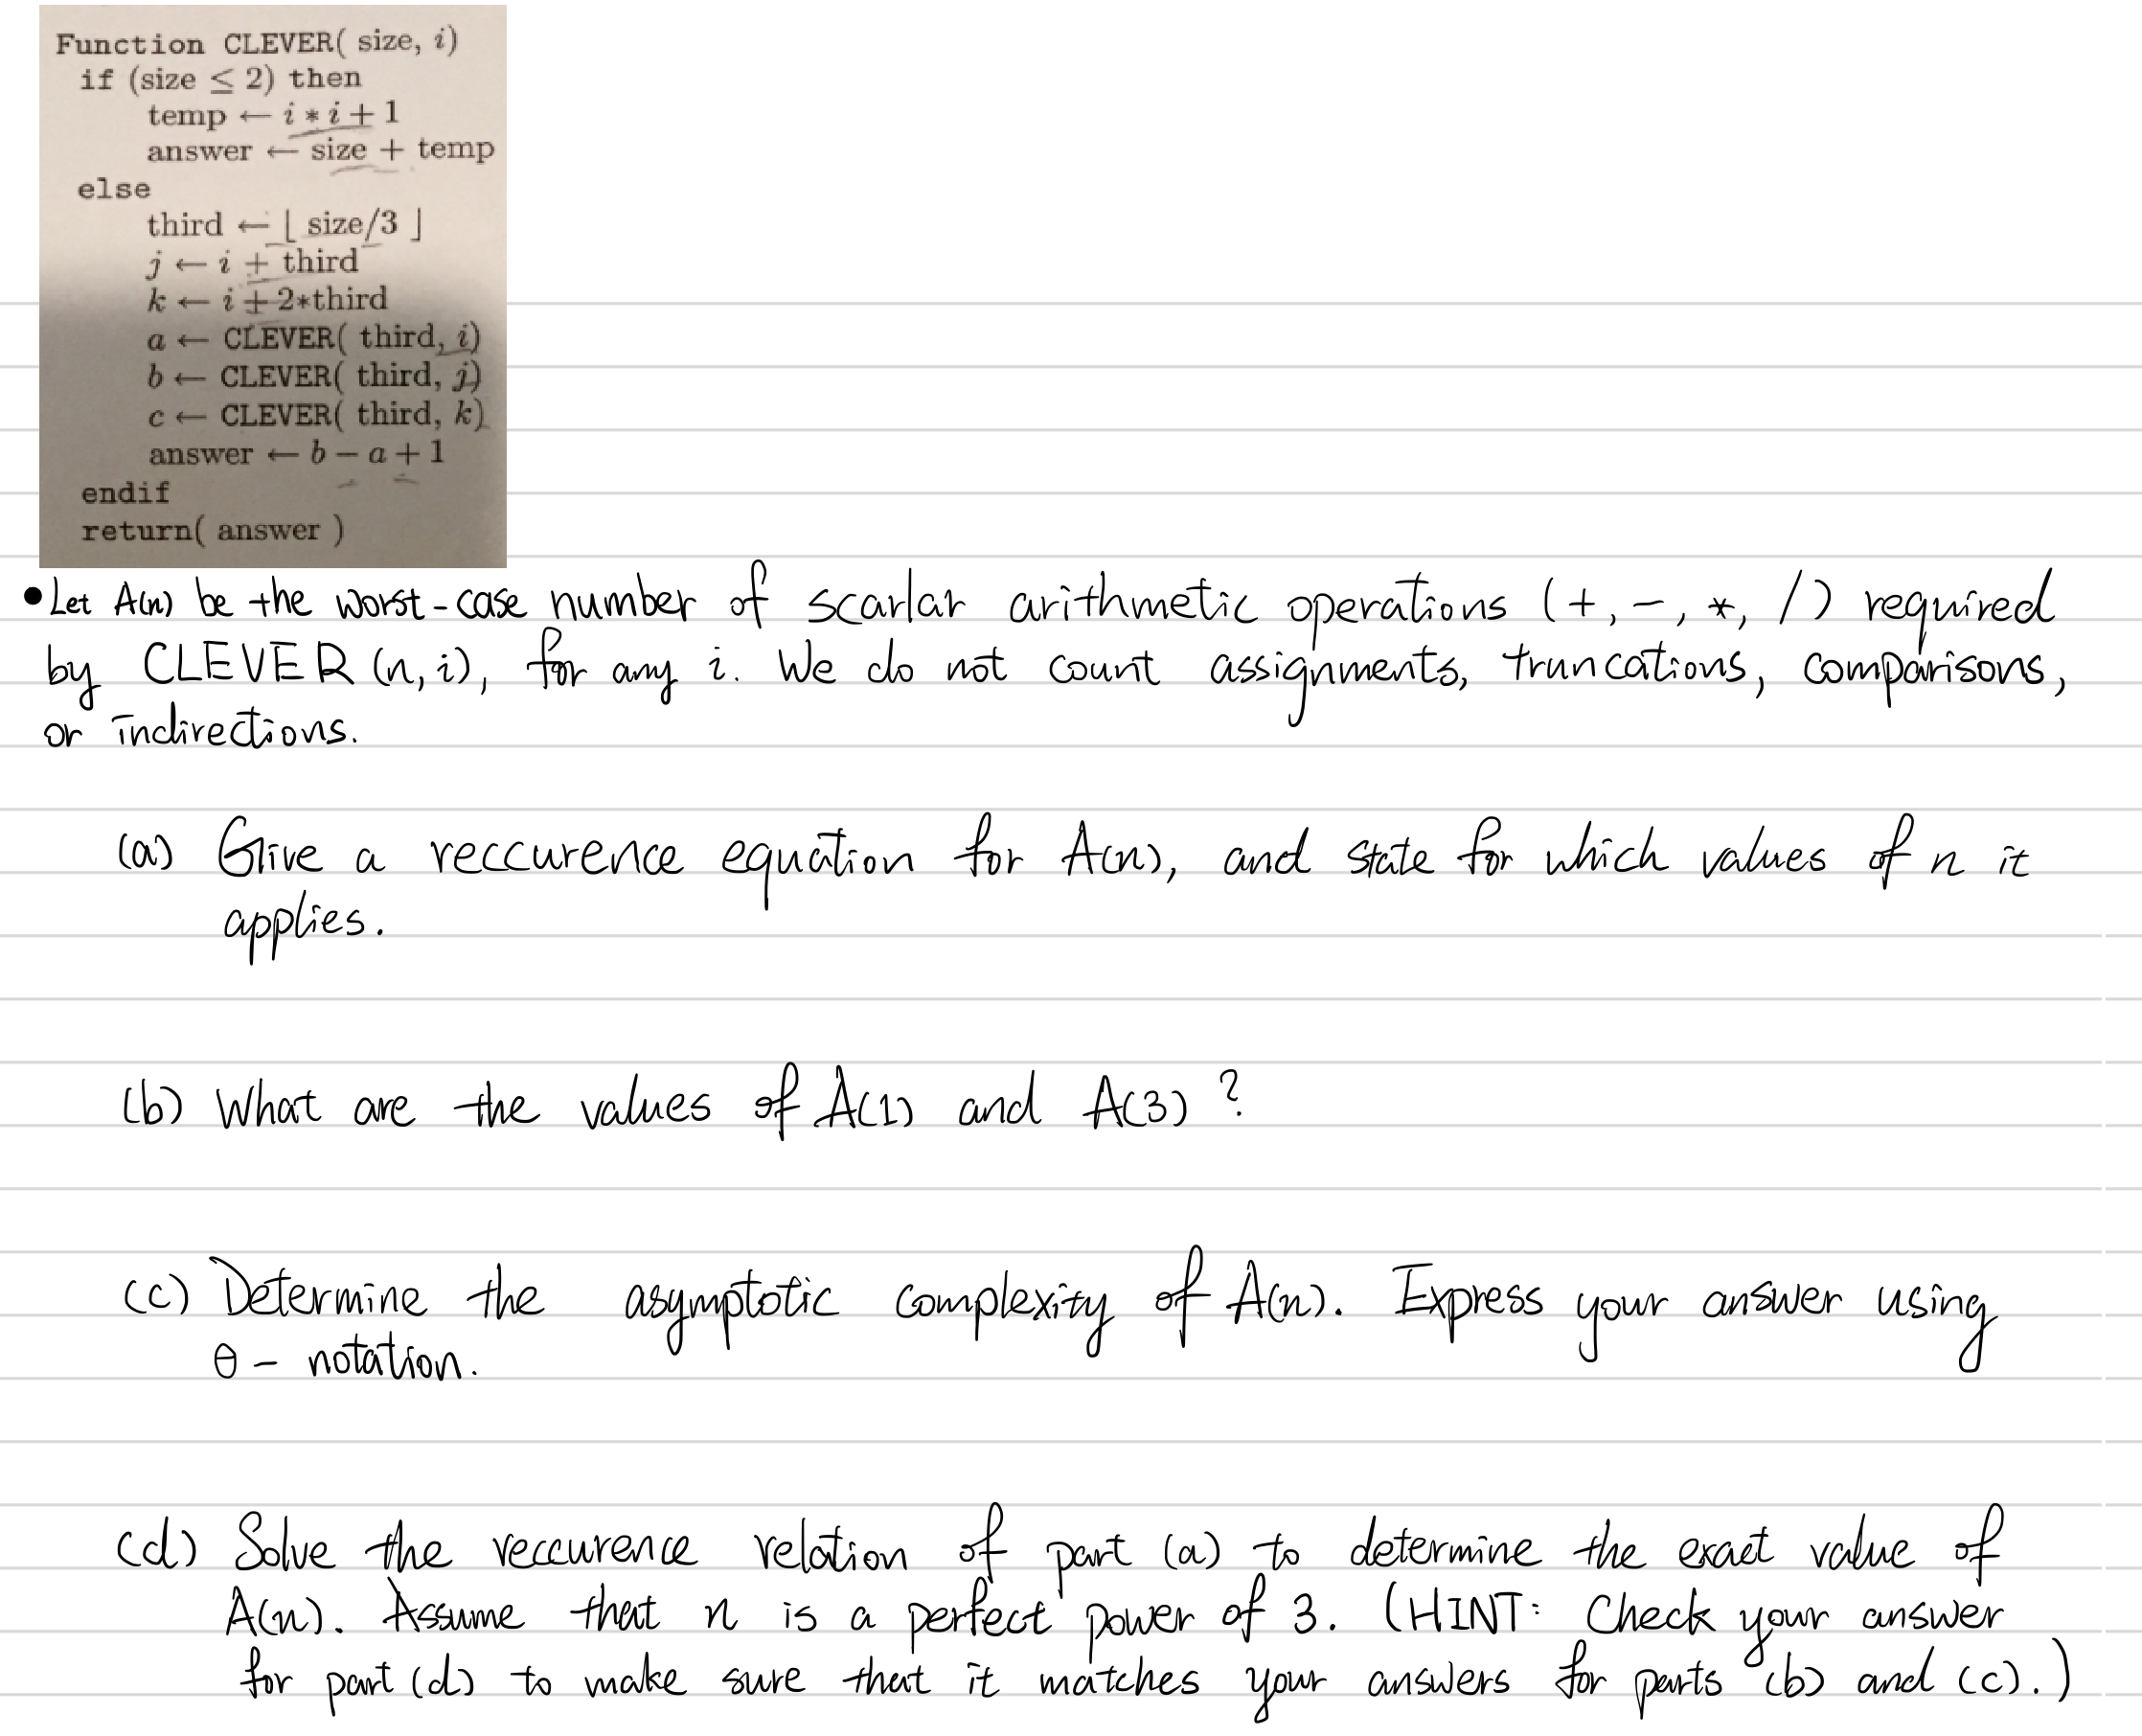 Function CLEVER( size, i)
if (size ≤ 2) then
temp ← i * i + 1
answer ← size + temp
else
third ← ⌊ size/3 ⌋
j ← i + third
k ← i + 2*third
a ← CLEVER( third, i)
b ← CLEVER( third, j)
c ← CLEVER( third, k)
answer ← b − a + 1
endif
return( answer )
• Let A(n) be the worst-case number of scarlar arithmetic operations (+, -, *, /) required
by CLEVER (n, i), for any i. We do not count assignments, truncations, comparisons,
or indirections.
(a) Give a reccurence equation for A(n), and state for which values of n it
applies.
(b) What are the values of A(1) and A(3)?
(c) Determine the asymptotic complexity of A(n). Express your answer using
θ - notation.
(d) Solve the reccurence relation of part (a) to determine the exact value of
A(n). Assume that n is a perfect power of 3. (HINT: Check your answer
for part (d) to make sure that it matches your answers for parts (b) and (c).)